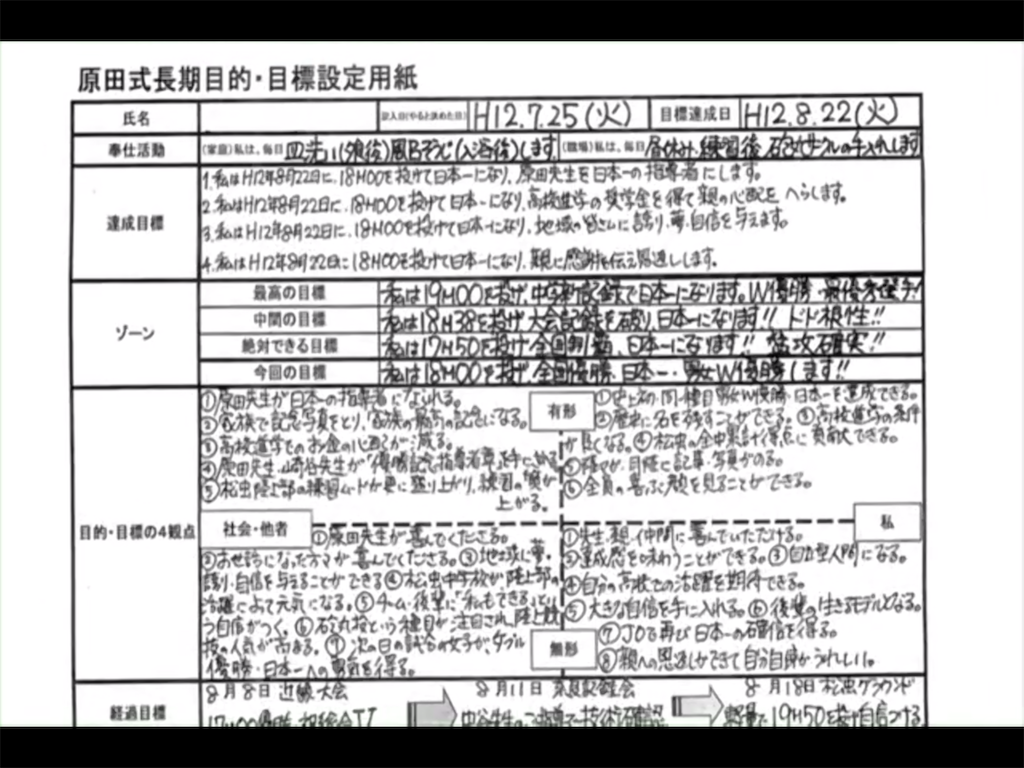 原田式長期目的・目標設定用紙
氏名
記入日(やると決めた日) H12.7.25(火) 目標達成日 H12.8.22(火)
奉仕活動 (家庭)私は、毎日 皿洗い(食後)風呂そうじ(入浴後)します (職場)私は、毎日 昼休み、練習後、石灰サークルの手入れします
達成目標
1.私はH12年8月22日に、18M00を投げて日本一になり、原田先生を日本一の指導者にします。
2.私はH12年8月22日に、18M00を投げて日本一になり、高校進学の奨学金を得て親の心配をへらします。
3.私はH12年8月22日に、18M00を投げて日本一になり、地域の皆さんに誇り・夢・自信を与えます。
4.私はH12年8月22日に18M00を投げて日本一になり、親に感謝を伝え恩返しします。
ゾーン
最高の目標 私は19M00を投げ、中学新記録で日本一になります。W優勝・最優秀選手!
中間の目標 私は18M38を投げ大会記録を破り、日本一になります!! ド根性!!
絶対できる目標 私は17M50を投げ全国制覇、日本一になります!!
今回の目標 私は18M00を投げ、全国優勝、日本一・男女W優勝します!!
目的・目標の4観点
有形
私
社会・他者
無形
①原田先生が日本一の指導者になられる。
②家族で記念写真をとり、家族の最高の記念になる。
③高校進学でのお金の心配が減る。
④原田先生・崎谷先生が「優勝記念指導者章」を手にされる
⑤松虫陸上部の練習ムードが更に盛り上がり、練習の質が
上がる。
①史上初、同一種目男女W優勝・日本一を達成できる。
②歴史に名を残すことができる。③高校進学の条件
が良くなる。④松虫の全中累計得点に貢献できる。
⑤陸マガ、月陸に記事・写真がのる。
⑥全員の喜ぶ顔を見ることができる。
①原田先生が喜んでくださる。
②お世話になった方々が喜んでくださる。③地域に夢・
誇り・自信を与えることができる④松虫中学校が陸上部の
活躍によって元気になる。⑤チーム・後輩に「私もできる」とい
う自信がつく。⑥砲丸投という種目が注目され、陸上競
技の人気が高まる。⑦次の日の試合の女子が、ダブル
優勝・日本一への勇気を得る。
①先生・親・仲間に喜んでいただける。
②達成感を味わうことができる。③自立型人間になる。
④自分の高校での活躍を期待できる。
⑤大きな自信を手に入れる。⑥後輩の生きるモデルとなる。
⑦JOで再び日本一の確信を得る。
⑧親への恩返しができて自分自身がうれしい。
経過目標
8月8日 近畿大会
8月11日 奈良記録会
8月18日 松虫グランド
中谷先生のご指導で技術確認